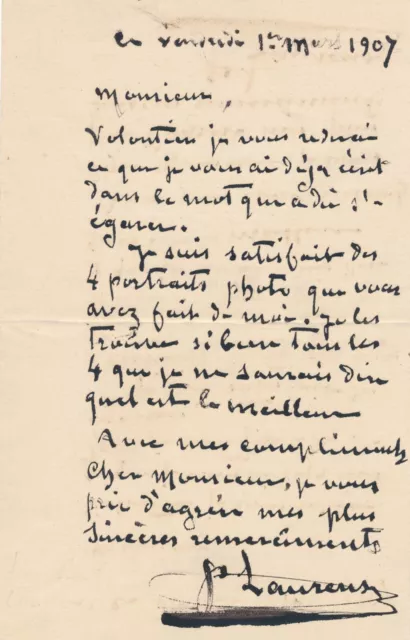 ce vendredi 1er Mars 1907
Monsieur,
Volontiers je vous redirai
ce que je vous ai déja écrit
dans le mot que a dû s'-
égarer.
Je suis satisfait des
4 portraits photo que vous
avez fait de moi. Je les
trouve si bien tous les
4 que je ne saurais dire
quel est le meilleur
Avec mes compliments
cher Monsieur, je vous
prie d'agréer mes plus
sincères remerciments
Laurens